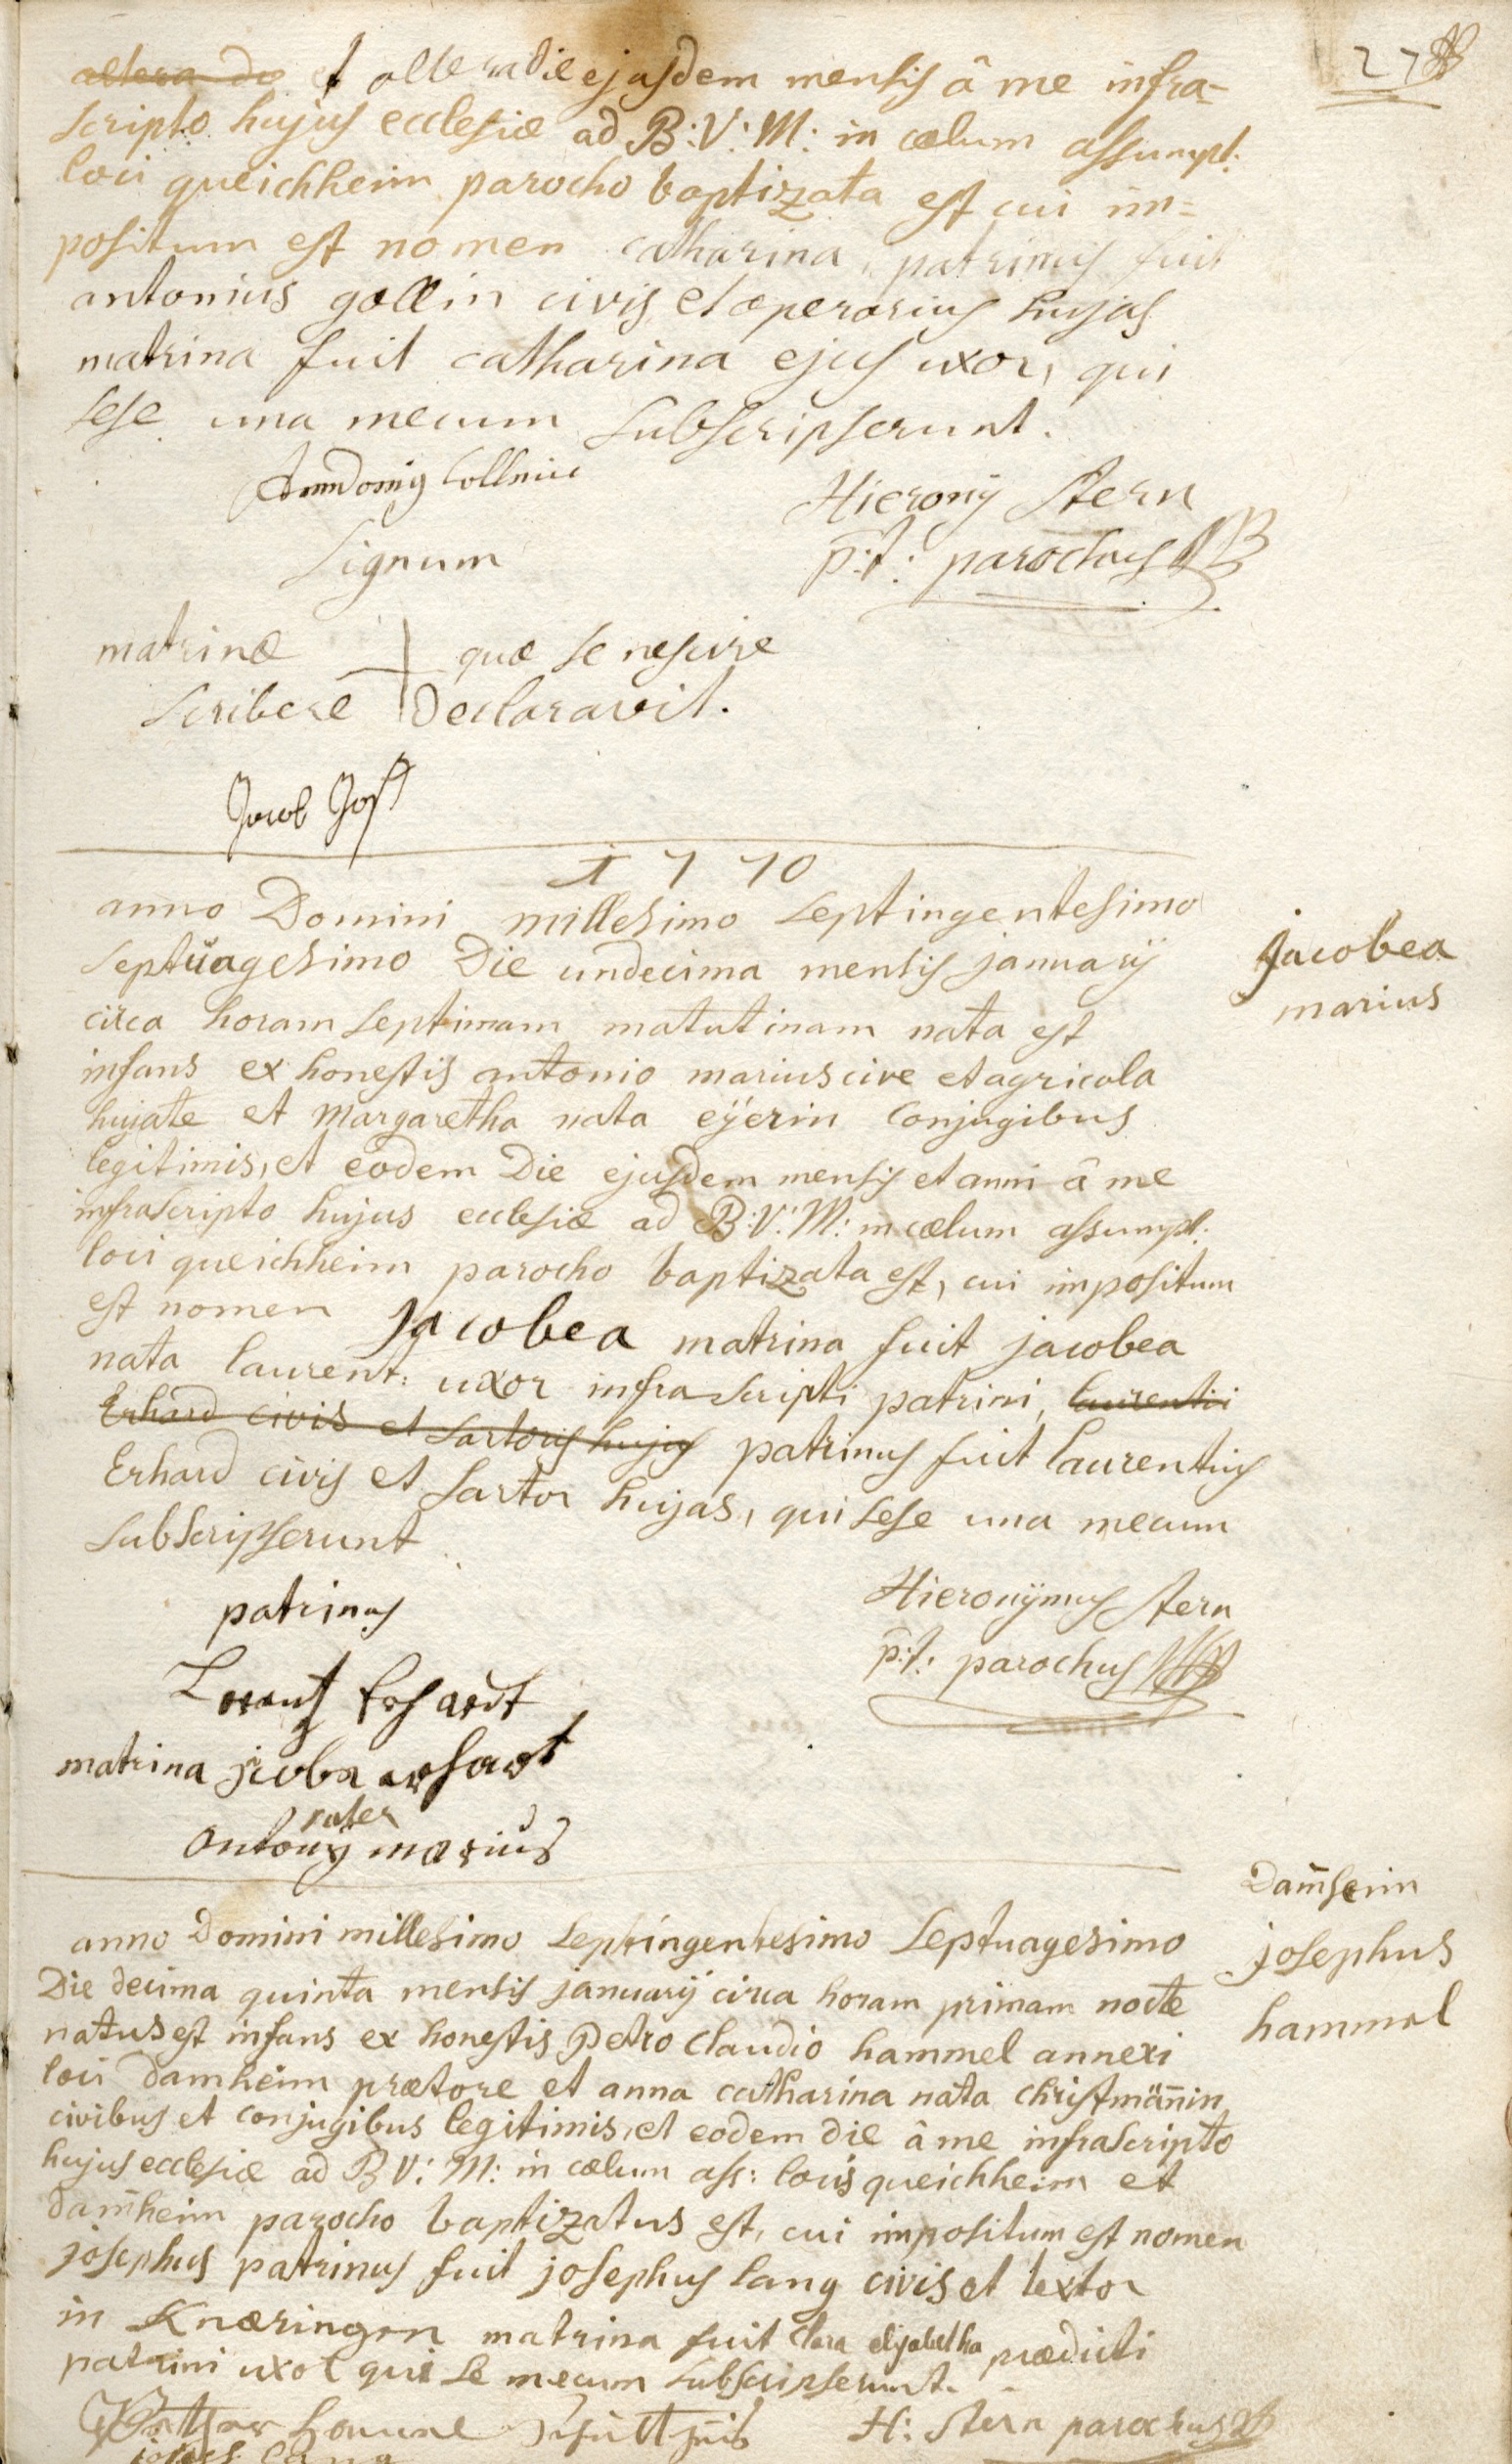 27
altera die et altera die ejusdem mensis â me infra-
scripto hujus ecclesiæ ad B: V: M: in cælum assumpt:
loci queichheim parocho baptizata est cui im=
positum est nomen catharina, patrinus fuit
antonius gollin civis et operarius hujas
matrina fuit catharina ejus uxor, qui
sese una mecum subscripserunt.
Hierony Stern
Signum
p:t: parochus
matrinæ + quæ se nescire
scribere declaravit.
Jacob Jost
1770
anno Domini millesimo septingentesimo
septuagesimo Die undecima mensis januarÿ
Jacobea
marius
circa horam septimam matutinam nata est
infans ex honestis antonio marius cive et agricola
hujate et Margaretha nata eÿerin conjugibus
legitimis, et eodem Die ejusdem mensis et anni â me
infrascripto hujus ecclesiæ ad B: V: M: in cælum assumpt:
loci queichheim parocho baptizata est, cui impositum
est nomen Jacobea matrina fuit jacobea
nata laurent: uxor infrascripti patrini, laurentii
Erhard civis et sartoris hujas patrinus fuit laurentius
Erhard civis et sartor hujas, qui sese una mecum
subscripserunt
patrinus
Hieronÿmus Stern
p:t: parochus
matrina
vater
antonÿ marius
anno Domini millesimo septingentesimo septuagesimo
Dam̄heim
josephus
hammel
Die decima quinta mensis januarÿ circa horam primam nocte
natus est infans ex honestis Petro Claudio hammel annexi
loci damheim prætore et anna catharina nata christmän̄in
civibus et conjugibus legitimis, et eodem die â me infrascripto
hujus ecclesiæ ad B V: M: in cælum ass: locis queichheim et
dam̄heim parocho baptizatus est, cui impositum est nomen
josephus patrinus fuit josephus lang civis et textor
in Knæringen matrina fuit clara elisabetha prædicti
patrini uxor qui se mecum subscripserunt.
H: Stern parochus